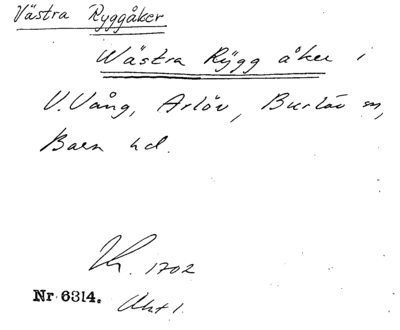 Västra Ryggåker
Wästra Rÿgg åker i
V. Vång, Arlöv, Burlöv sn,
Bara hd.
1702
Nr 6314. Akt 1.